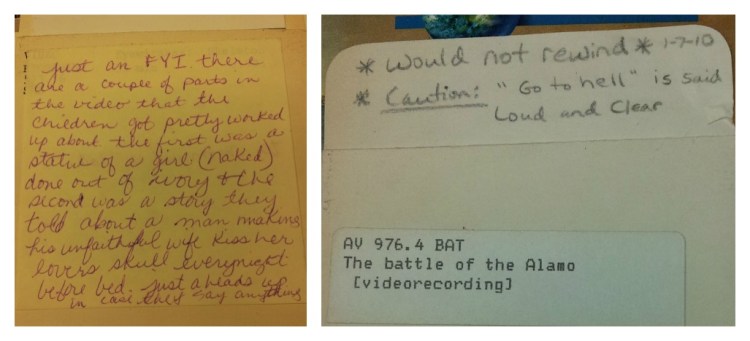 just an FYI. there
are a couple of parts in
the video that the
children got pretty worked
up about the first was a
statue of a girl (naked)
done out of ivory & the
second was a story they
told about a man making
his unfaithful wife kiss her
lovers skull everynight
before bed. just a heads up
in case they say anything
* Would not rewind * 1-7-10
* Caution: "Go to hell" is said
Loud and Clear
AV 976.4 BAT
The battle of the Alamo
[videorecording]